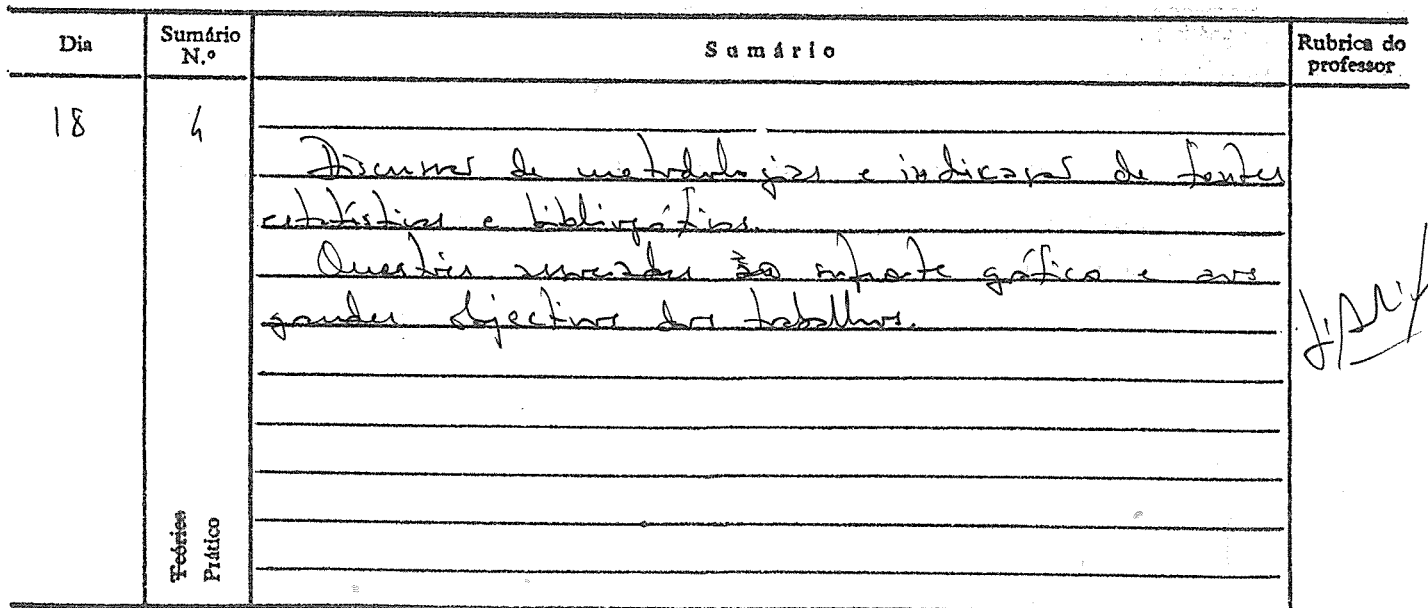 Dia
Sumário N.º
Sumário
Rubrica do professor
18
4
Discussão de metodologias e indicação de fontes
estatísticas e bibliográficas.
Questões associadas ao suporte gráfico e aos
grandes objectivos dos trabalhos.
Teórico
Prático